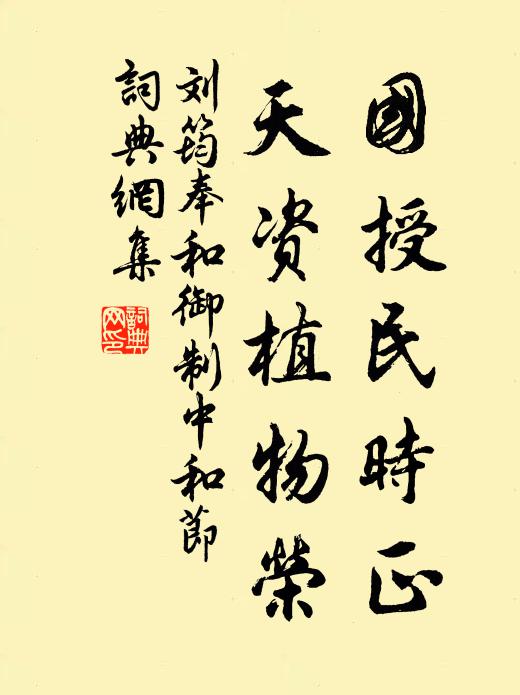 國授民時正
天资植物榮
刘筠奉和御制中和節
詞典網集
詞典网印